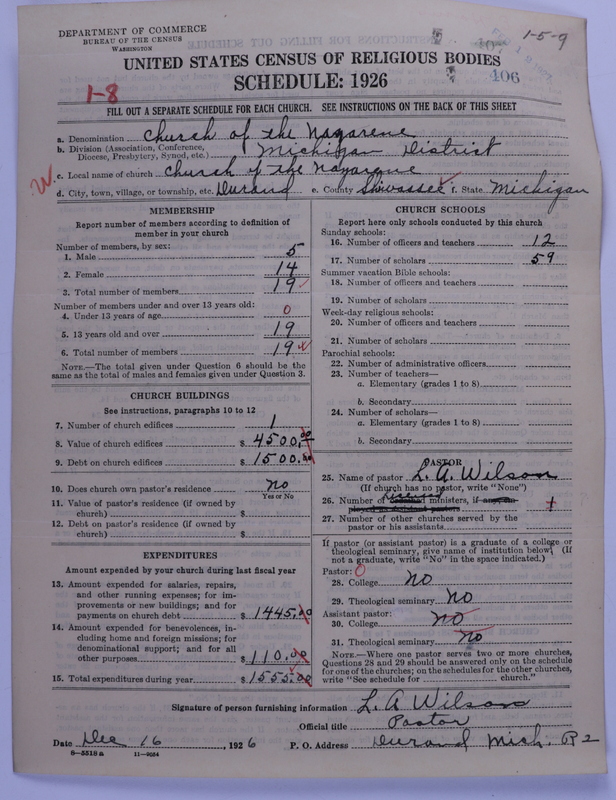 DEPARTMENT OF COMMERCE
BUREAU OF THE CENSUS
WASHINGTON
1-5-9
406
UNITED STATES CENSUS OF RELIGIOUS BODIES
SCHEDULE: 1926
1-8
FILL OUT A SEPARATE SCHEDULE FOR EACH CHURCH. SEE INSTRUCTIONS ON THE BACK OF THIS SHEET
a. Denomination Church of the Nazarene
b. Division (Association, Conference, Diocese, Presbytery, Synod, etc.) Michigan District
c. Local name of church Church of the Nazarene
d. City, town, village, or township, etc. Durand e. County Shiwassee f. State Michigan
MEMBERSHIP
Report number of members according to definition of
member in your church
Number of members, by sex:
1. Male 5
2. Female 14
3. Total number of members 19
Number of members under and over 13 years old:
4. Under 13 years of age 0
5. 13 years old and over 19
6. Total number of members 19
NOTE.—The total given under Question 6 should be
the same as the total of males and females given under Question 3.
CHURCH BUILDINGS
See instructions, paragraphs 10 to 12
7. Number of church edifices 1
8. Value of church edifices $ 4500.00
9. Debt on church edifices $ 1500.00
10. Does church own pastor's residence No
Yes or No
11. Value of pastor's residence (if owned by
church) $
12. Debt on pastor's residence (if owned by
church) $
EXPENDITURES
Amount expended by your church during last fiscal year
13. Amount expended for salaries, repairs,
and other running expenses; for im-
provements or new buildings; and for
payments on church debt $ 1445.00
14. Amount expended for benevolences, in-
cluding home and foreign missions; for
denominational support; and for all
other purposes $ 110.00
15. Total expenditures during year $ 1555.00
CHURCH SCHOOLS
Report here only schools conducted by this church
Sunday schools:
16. Number of officers and teachers 12
17. Number of scholars 59
Summer vacation Bible schools:
18. Number of officers and teachers
19. Number of scholars
Week-day religious schools:
20. Number of officers and teachers
21. Number of scholars
Parochial schools:
22. Number of administrative officers
23. Number of teachers—
a. Elementary (grades 1 to 8)
b. Secondary
24. Number of scholars—
a. Elementary (grades 1 to 8)
b. Secondary
PASTOR
25. Name of pastor L. A. Wilson
(If church has no pastor, write "None")
26. Number of ministers, if
27. Number of other churches served by the
pastor or his assistants
If pastor (or assistant pastor) is a graduate of a college or
theological seminary, give name of institution below. (If
not a graduate, write "No" in the space indicated.)
Pastor: 0
28. College No
29. Theological seminary No
Assistant pastor:
30. College No
31. Theological seminary No
NOTE.—Where one pastor serves two or more churches,
Questions 28 and 29 should be answered only on the schedule
for one of the churches; on the schedules for the other churches,
write "See schedule for church."
Signature of person furnishing information L. A Wilson
Official title Pastor
Date Dec 16, 1926 P. O. Address Durand Mich. R 2
8—5518 a 11—9084